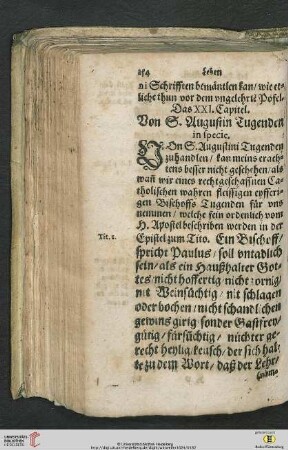 254 Leben
ni Schrifften bemäntlen kan/ wie et⸗
liche thun vor dem vngelehrtē Pöfel.
Das XXI. Capitel.
Von S. Augustin Tugenden
in specie.
VOn S. Augustini Tugenden
zuhandlen / kan meins erach⸗
tens besser nicht geschehen/ als
wañ wir eines rechtgeschaffnen Ca⸗
tholischen wahren fleissigen eyfferi⸗
gen Bischoffs Tugenden für vns
nemmen / welche fein ordenlich vom
H. Apostel beschriben werden in der
Tit. 1. Epistel zum Tito. Ein Bischoff/
spricht Paulus / soll vntadlich
sein/ als ein Haußhalter Got⸗
tes/ nicht hoffertig/ nicht zornig/
nit Weinsüchtig / nit schlagen
oder bochen / nicht schandlichen
gewins girig/ sonder Gastfrey/
gütig/ fürsüchtig / nüchter ge⸗
recht heylig/ keusch/ der sich hal⸗
te zu dem Wort/ daß der Lehr/